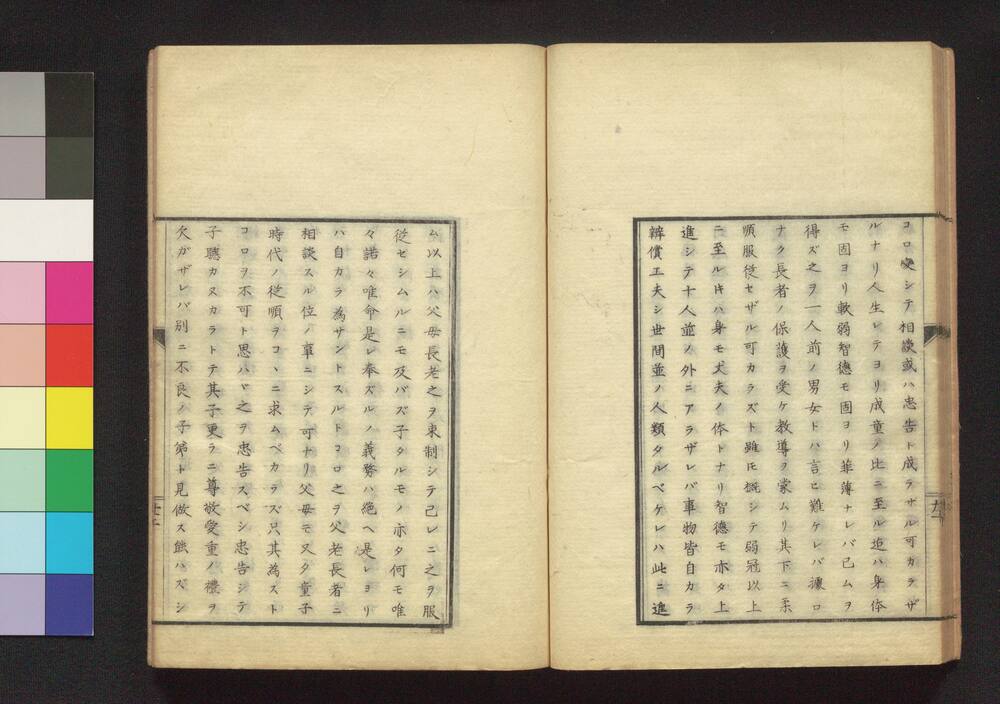 コロ変シテ相談或ハ忠告ト成ラザル可カラザ
ルナリ人生レテヨリ成童ノ比ニ至ル迄ハ身体
モ固ヨリ軟弱智徳モ固ヨリ菲薄ナレバ已ムヲ
得ズ之ヲ一人前ノ男女トハ言ヒ難ケレバ據ロ
ナク長者ノ保護ヲ受ケ教導ヲ蒙ムリ其下ニ柔
順服従セザル可カラズト雖モ概シテ弱冠以上
ニ至ル片ハ身モ丈夫ノ体トナリ智徳モ亦タ上
進シテ十人並ノ外ニアラザレバ事物皆自カラ
辨償工夫シ世間並ノ人類タルベケレハ此ニ進
ム以上ハ父母長老之ヲ束制シテ己レニ之ヲ服
従セシムルニモ及バズ子タルモノ亦タ何モ唯
々諾々唯命是レ奉ズルノ義務ハ絶ヘ是レヨリ
ハ自カラ為サントスルトコロ之ヲ父老長者ニ
相談スル位ノ事ニシテ可ナリ父母モ又タ童子
時代ノ従順ヲコヽニ求ムベカラズ只其為スト
コロヲ不可ト思ハヾ之ヲ忠告スベシ忠告シテ
子聴カヌカラトテ其子更ラニ尊敬愛重ノ禮ヲ
欠ガザレバ別ニ不良ノ子弟ト見做ス能ハズシ